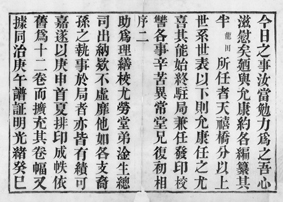 今日之事汝當勉力爲之吾心
滋慰矣麺與允康約各編纂其
半龍田所任者天禧橋分以上
世系世表以下則允康任之尤
喜其能始終駐局兼任發印校
讐各事辛苦異常堂兄復初相
序二
助爲理繕校尤勞堂弟淦生總
司出納欵不虛靡他如各支裔
孫之執事於局者亦皆有績可
嘉遂以庚申首夏排印成帙依
舊爲十二卷而擴充其卷幅又
據同治庚午譜証明光緒癸巳